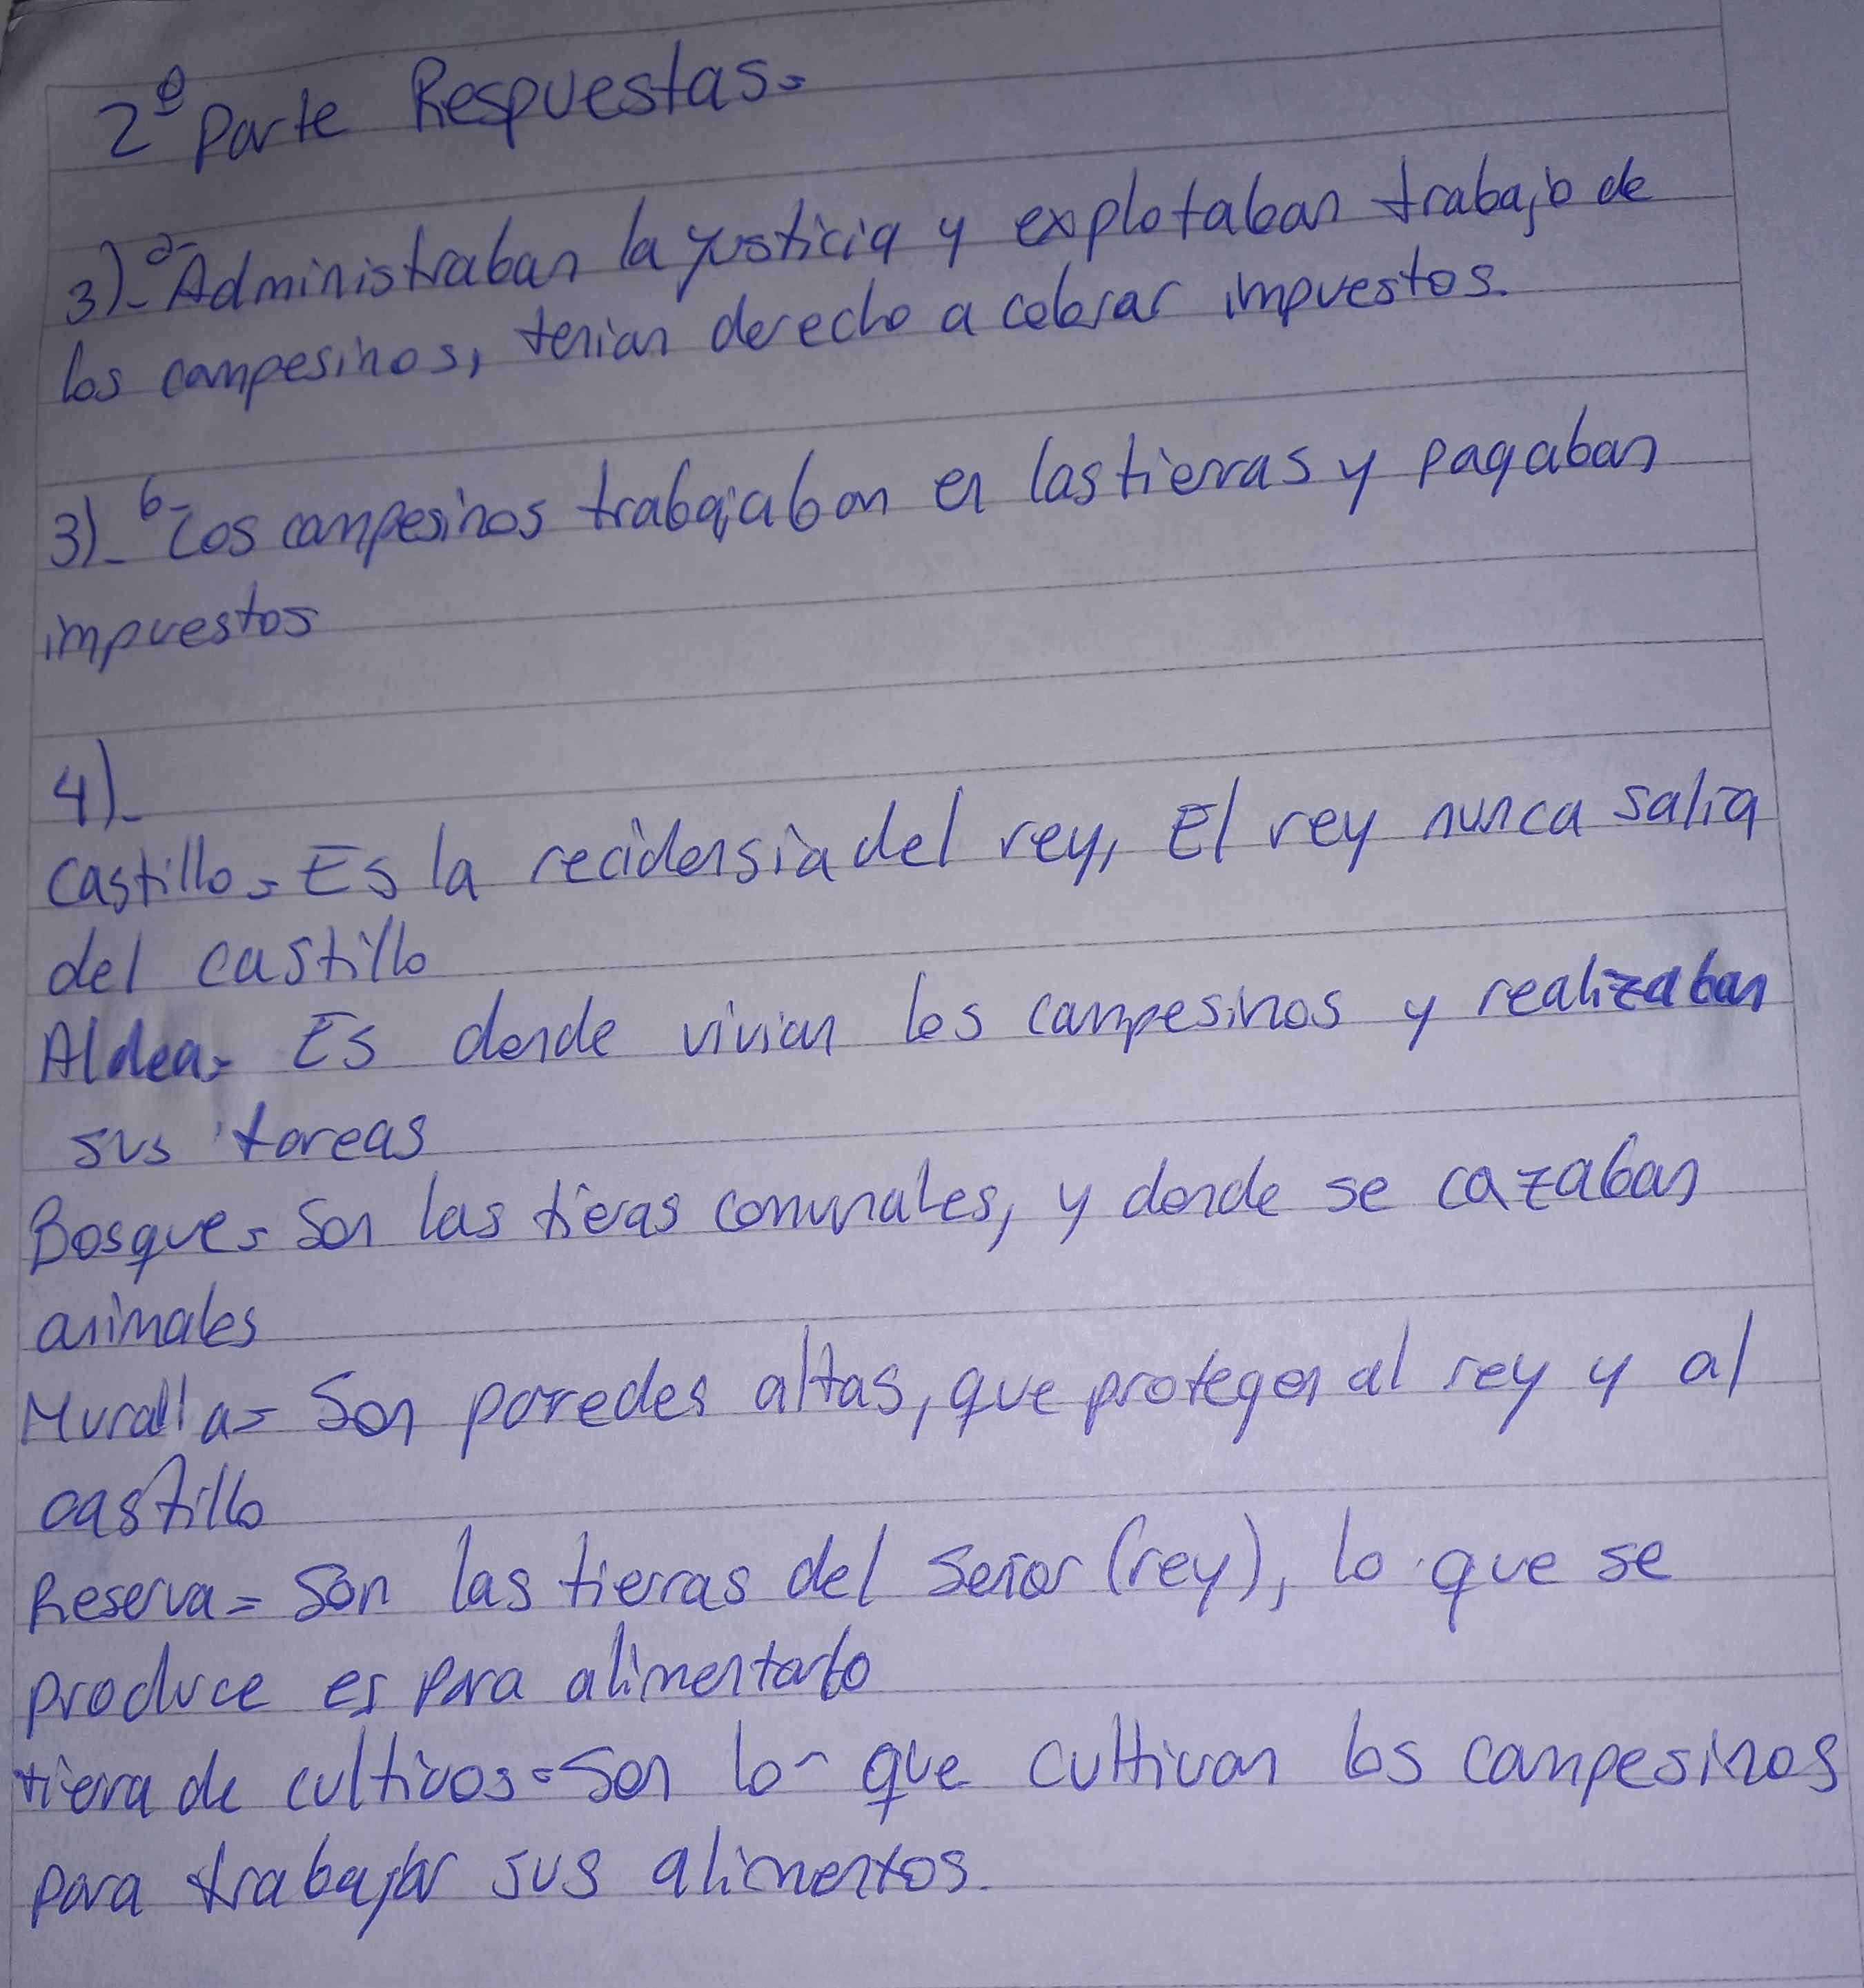 2º Parte Respuestas=
3)-a-Administraban la justicia y explotaban trabajo de
los campesinos, tenian derecho a cobrar impuestos.
3)-b-Los campesinos trabajaban en las tierras y pagaban
impuestos
4)-
Castillo= Es la recidensia del rey, El rey nunca salia
del castillo
Aldea= Es donde vivian los campesinos y realizaban
sus tareas
Bosque= Son las tieras comunales, y donde se cazaban
animales
Muralla= Son paredes altas, que protegen al rey y al
castillo
Reserva= Son las tierras del señor (rey), lo que se
produce es para alimentarlo
tierra de cultivos= Son lo que cultivan los campesinos
para trabajar sus alimentos.